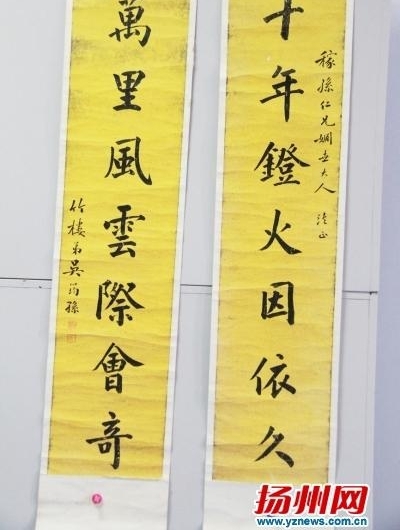 十年鐙火因依久
稼孫仁兄姻世大人 法正
萬里風雲際會奇
竹樓弟吳筠孫
扬州网
www.yznews.com.cn